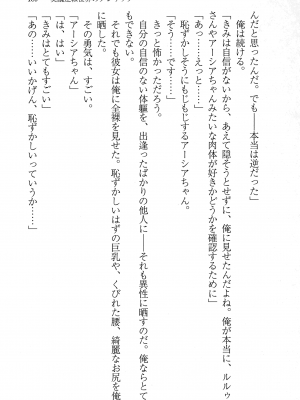 んだと思ったんだ。でも――本当は逆だった」
俺は続ける。
「きみは自信がないから、あえて隠そうとせずに、俺に見せたんだよね。俺が本当に、ルルゥ
さんやアーシアちゃんみたいな肉体が好きかどうかを確認するために」
「あっ……えっと……」
恥ずかしそうにもじもじするアーシアちゃん。
「そう……です……」
きっと怖かっただろう。
自分の自信のない体軀を、出逢ったばかりの他人に――それも異性に晒すのだ。俺ならとて
もできない。
それでも彼女は俺に全裸を見せた。恥ずかしいはずの巨乳や、くびれた腰、綺麗なお尻を俺
に晒した。
その勇気は、すごい。
「アーシアちゃん」
「は、はい」
「きみはとてもすごい」
「あの……いいかげん、恥ずかしいっていうか……」